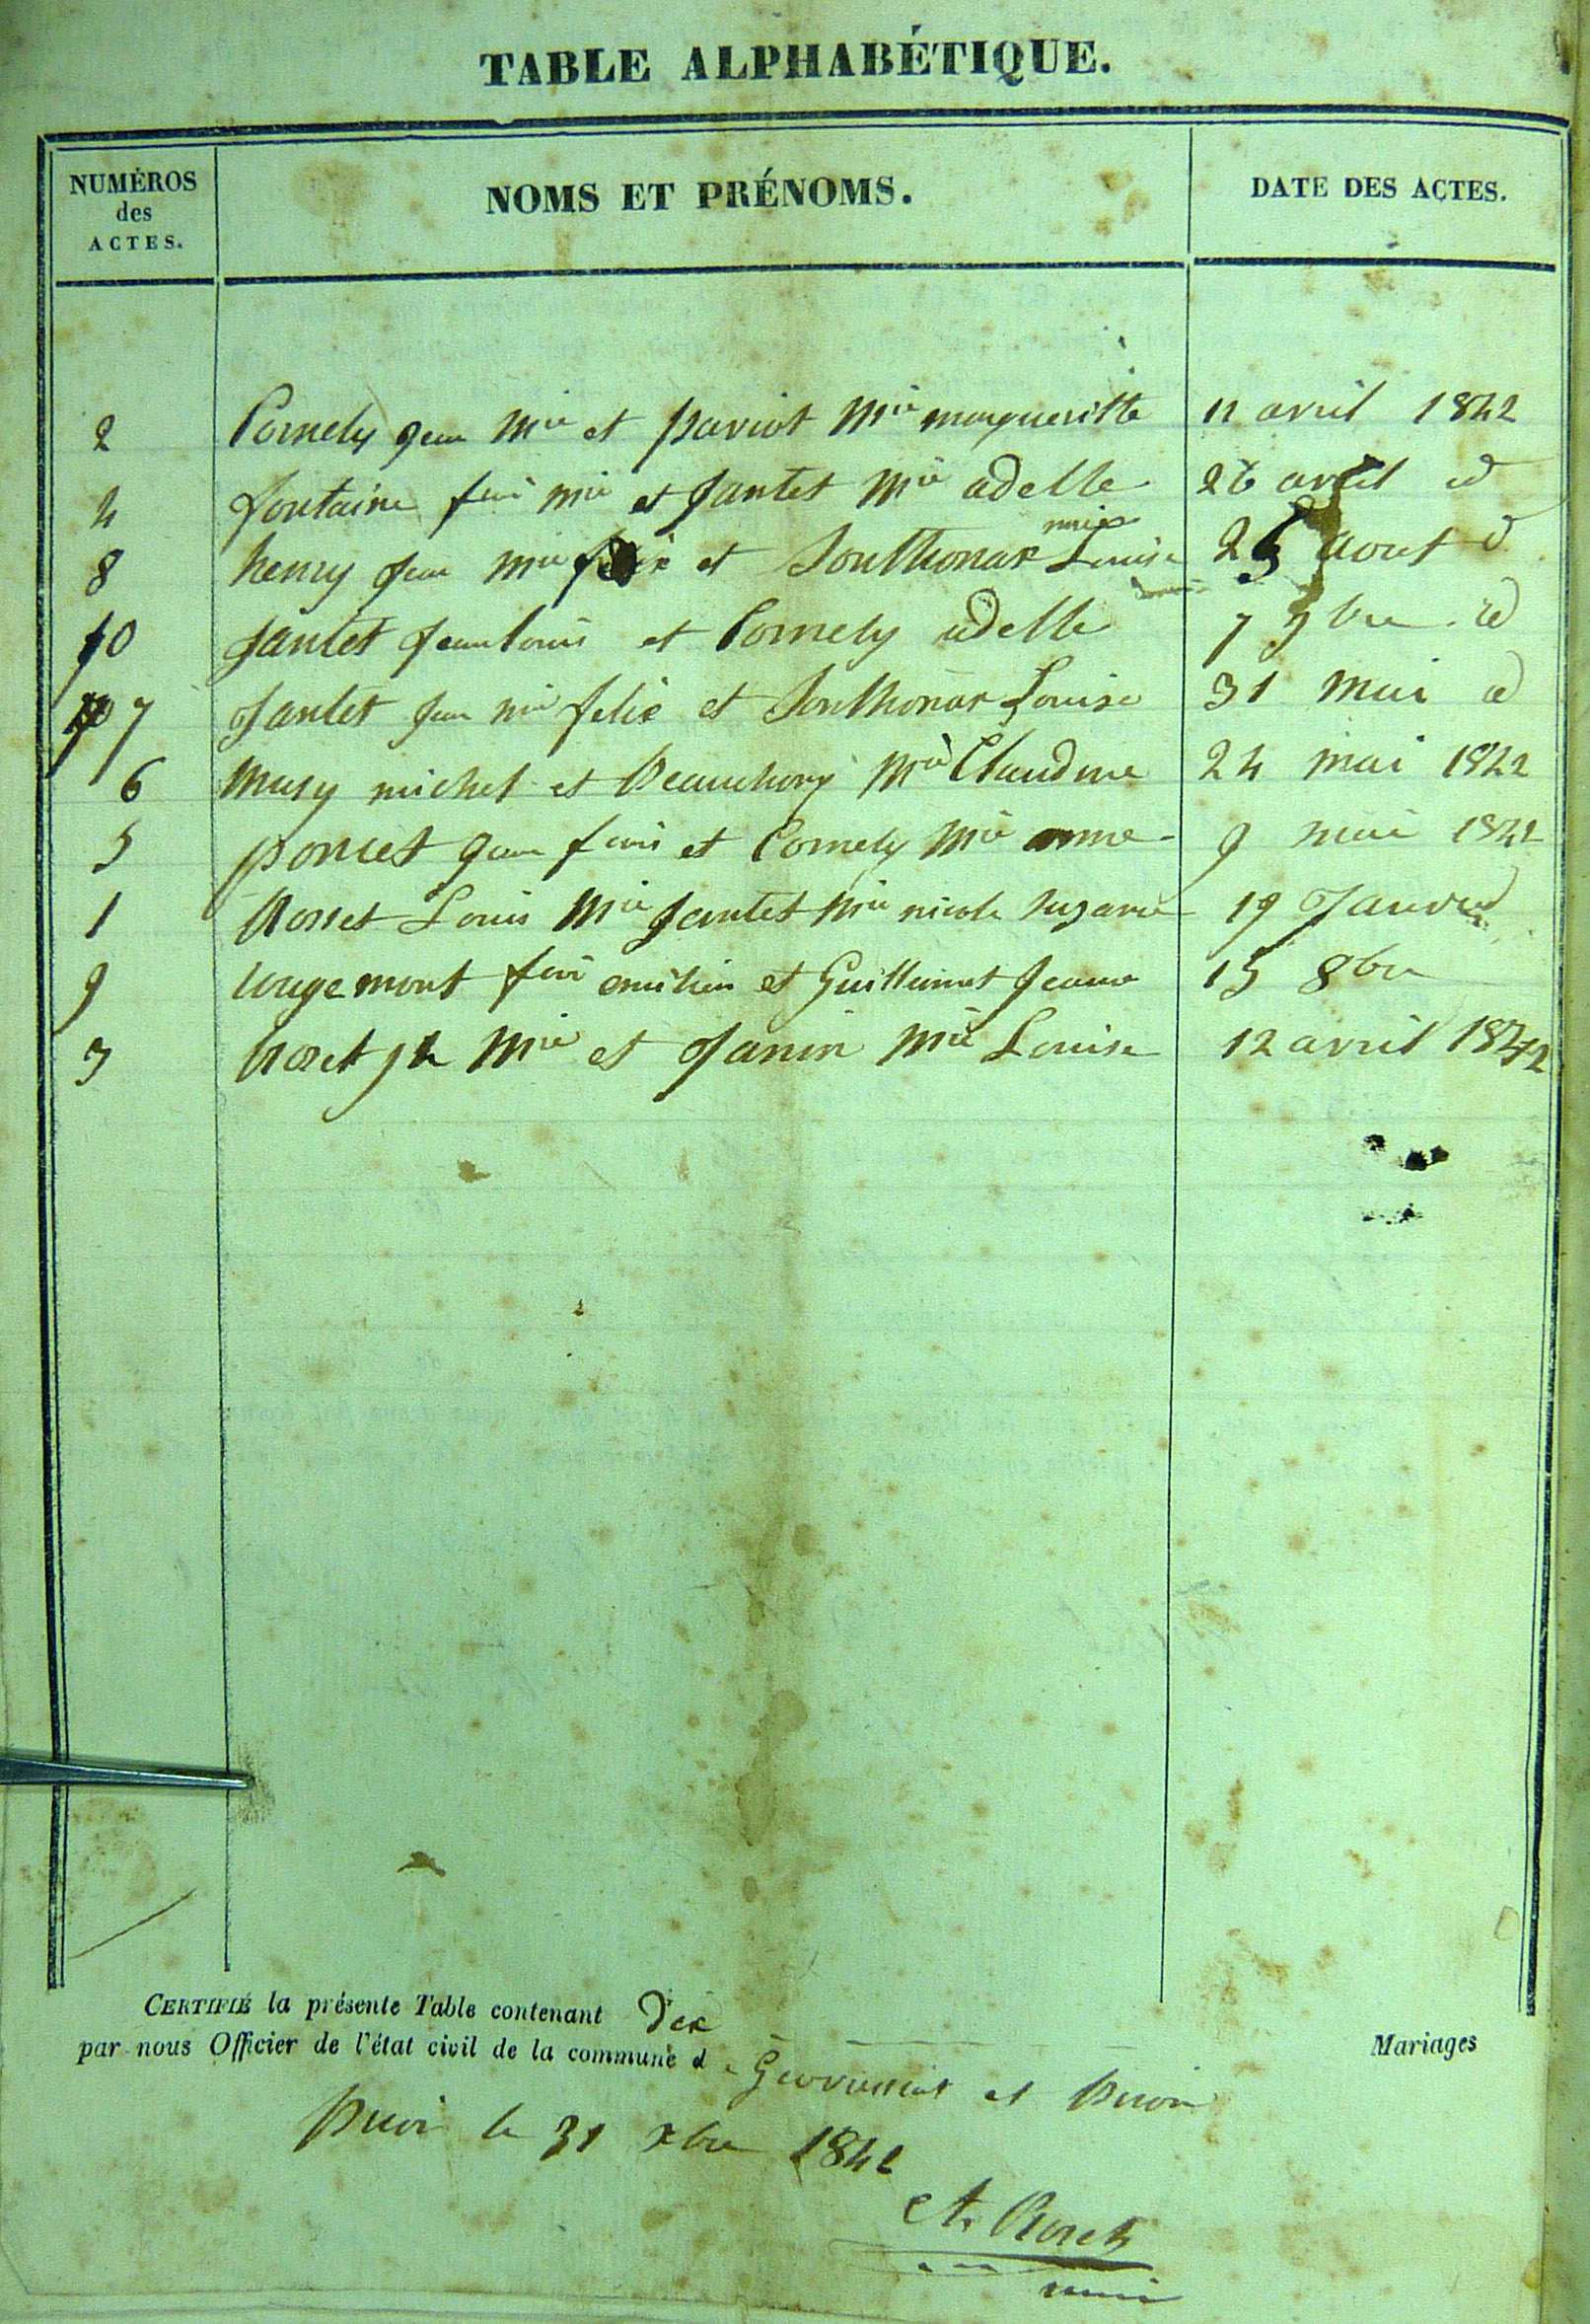 TABLE ALPHABÉTIQUE.
NUMÉROS des ACTES.
NOMS ET PRÉNOMS.
DATE DES ACTES.
2 Cornely jean Mie et pariot Mie margueritte 11 avril 1842
4 fontaine fois mie et Jantet Mie adelle 26 avril id
8 henry jean Mie felix et Southonax Louise 25 aout d
10 Jantet Jean Louis et Cornely adelle 7 9bre id
7 Jantet jean mie felix et Southonax Louise 31 mai id
6 Musy michel et Mie Claudine 24 mai 1842
5 poncet jean fois et Cornely Mie anne 9 mai 1842
1 Rosset Louis Mie Jantet Mie nicole suzanne 19 Janvier
9 vuagemont fois emilien et Guillemot Jeanne 15 8bre
3 Roset jh Mie et Janin Mie Louise 12 avril 1842
CERTIFIÉ la présente Table contenant Dix Mariages
par nous Officier de l'état civil de la commune de et
le 31 xbre 1842
Roset